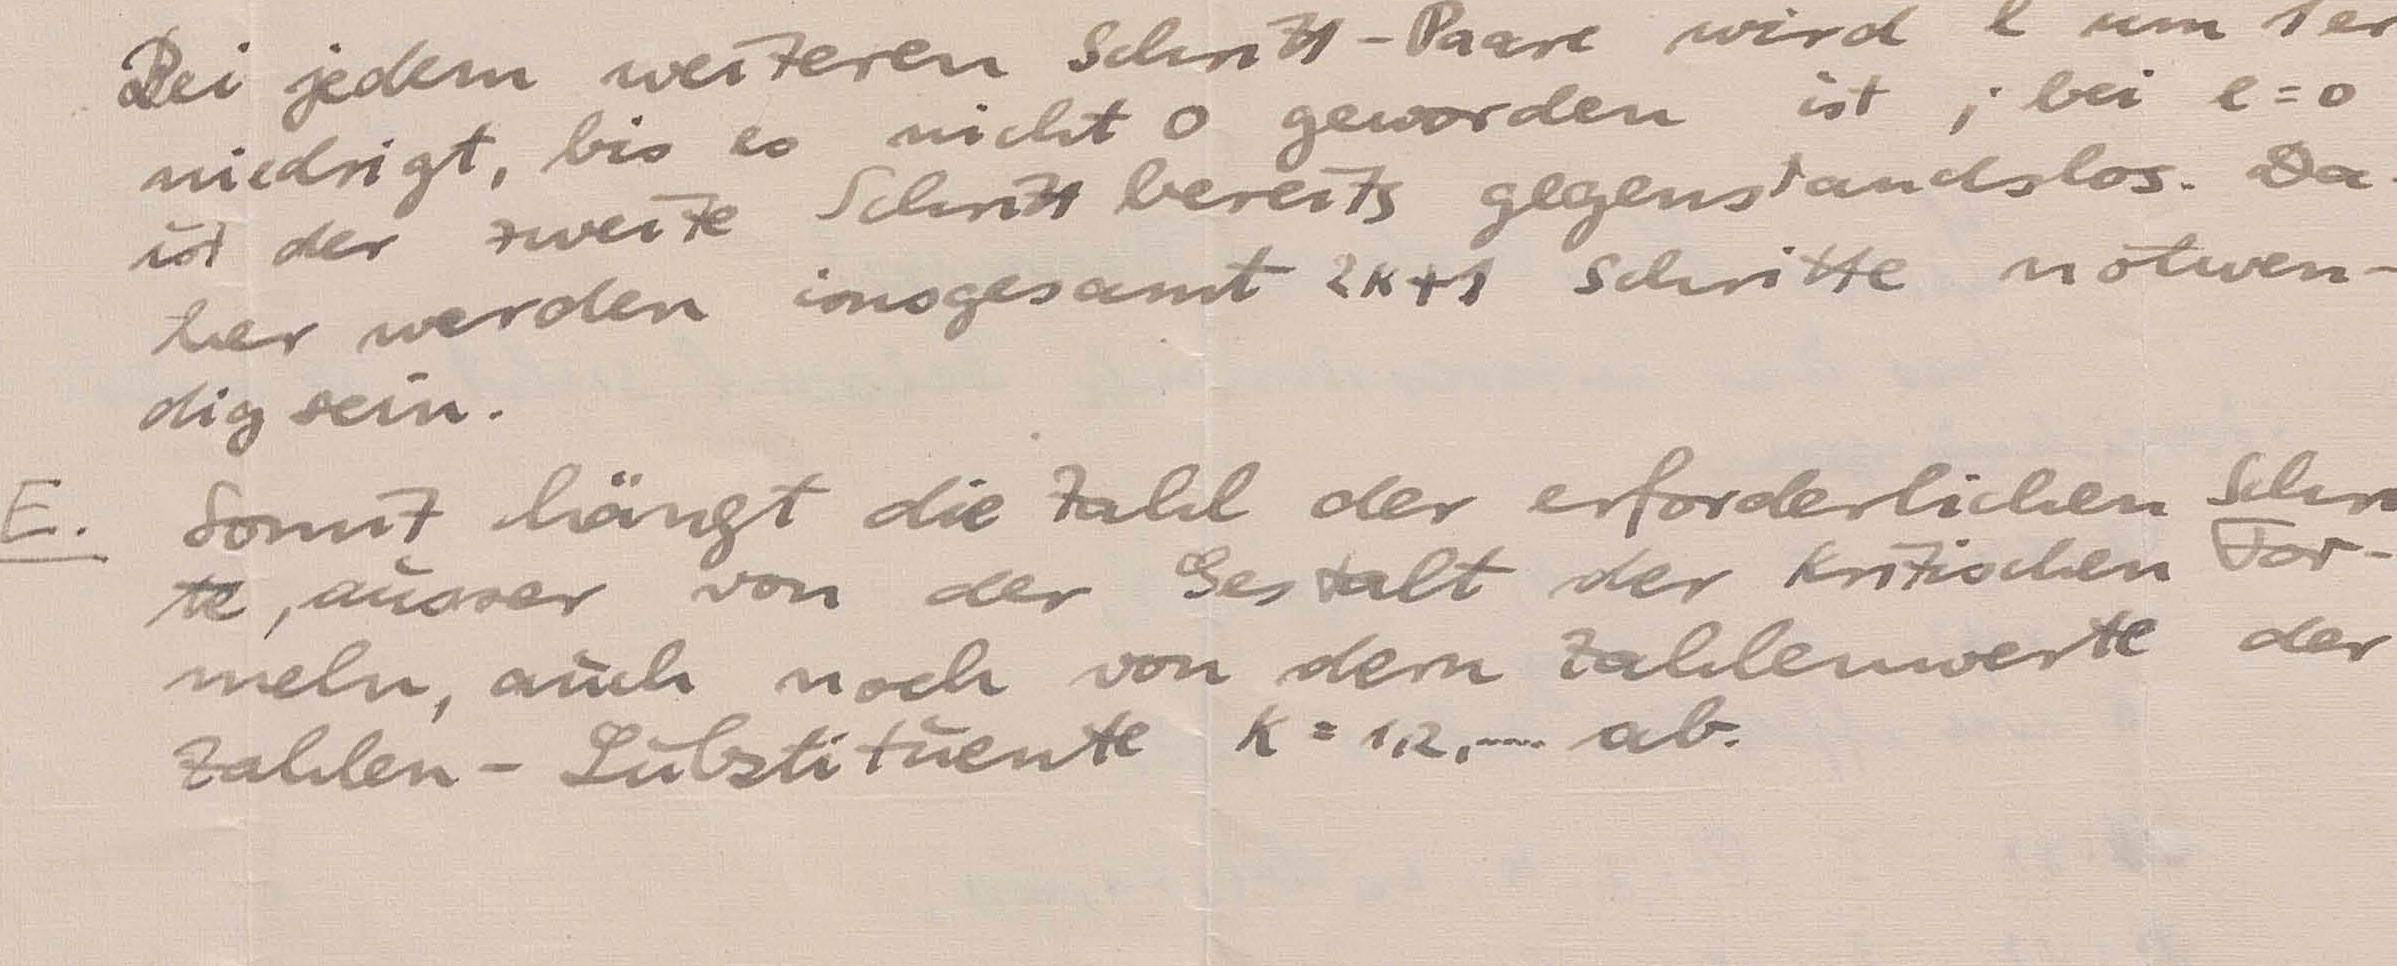 Bei jedem weiteren Schritt-Paare wird l um 1 er
niedrigt, bis es nicht 0 geworden ist; bei l=0
ist der zweite Schritt bereits gegenstandslos. Da-
her werden insgesamt 2k+1 Schritte notwen-
dig sein.
E. Somit hängt die Zahl der erforderlichen Schri
te, ausser von der Gestalt der kritischen For-
meln, auch noch von dem Zahlenwerte der
Zahlen-Substituente k = 1,2,.... ab.